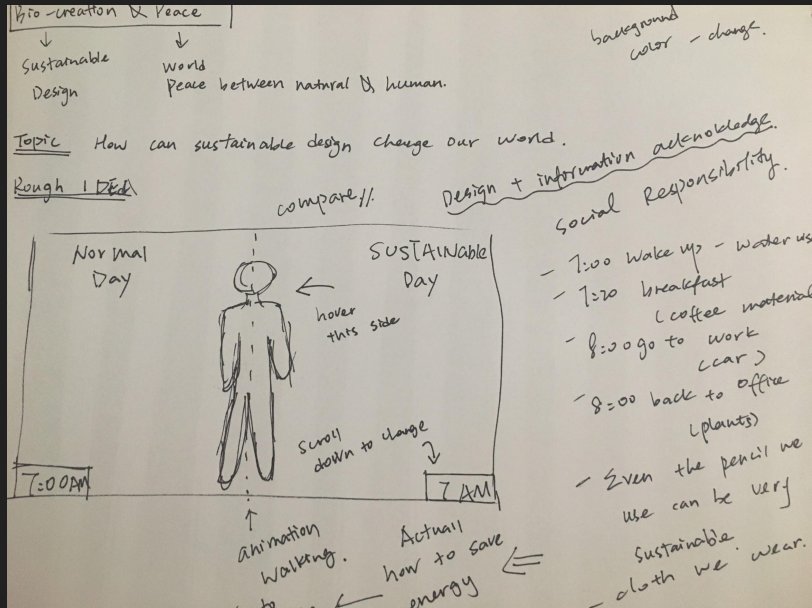 Bio-creation & Peace
Sustainable
Design
World
Peace between natural & human.
background
color - change.
Topic How can sustainable design change our world.
Rough IDEA
compare
Design + information acknowledge.
Social Responsibility.
Normal
Day
SUSTAINable
Day
hover
this side
scroll
down to change
7:00AM
7 AM
animation
walking.
to
Actuall
how to save
energy
- 7:00 wake up - water us
- 7:20 breakfast
(coffee material
- 8:00 go to work
(car)
- 8:00 back to office
(plants)
- Even the pencil we
use can be very
sustainable
- cloth we wear.